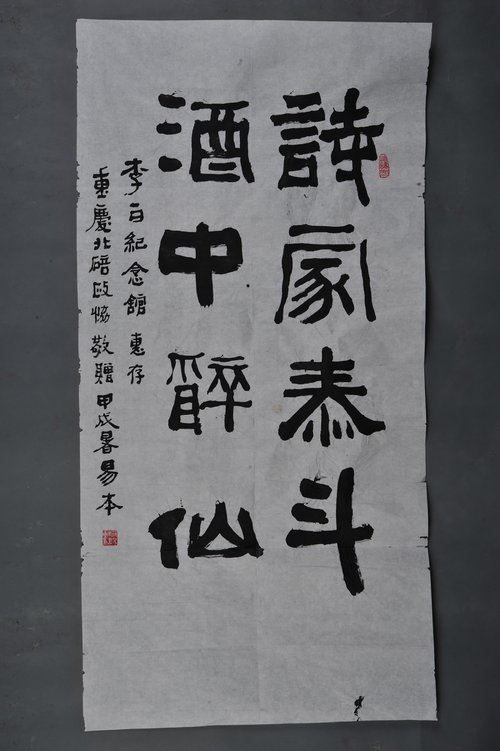 詩家泰斗
酒中醉仙
李白紀念館 惠存
重慶北碚政協敬贈 甲戌暑易本